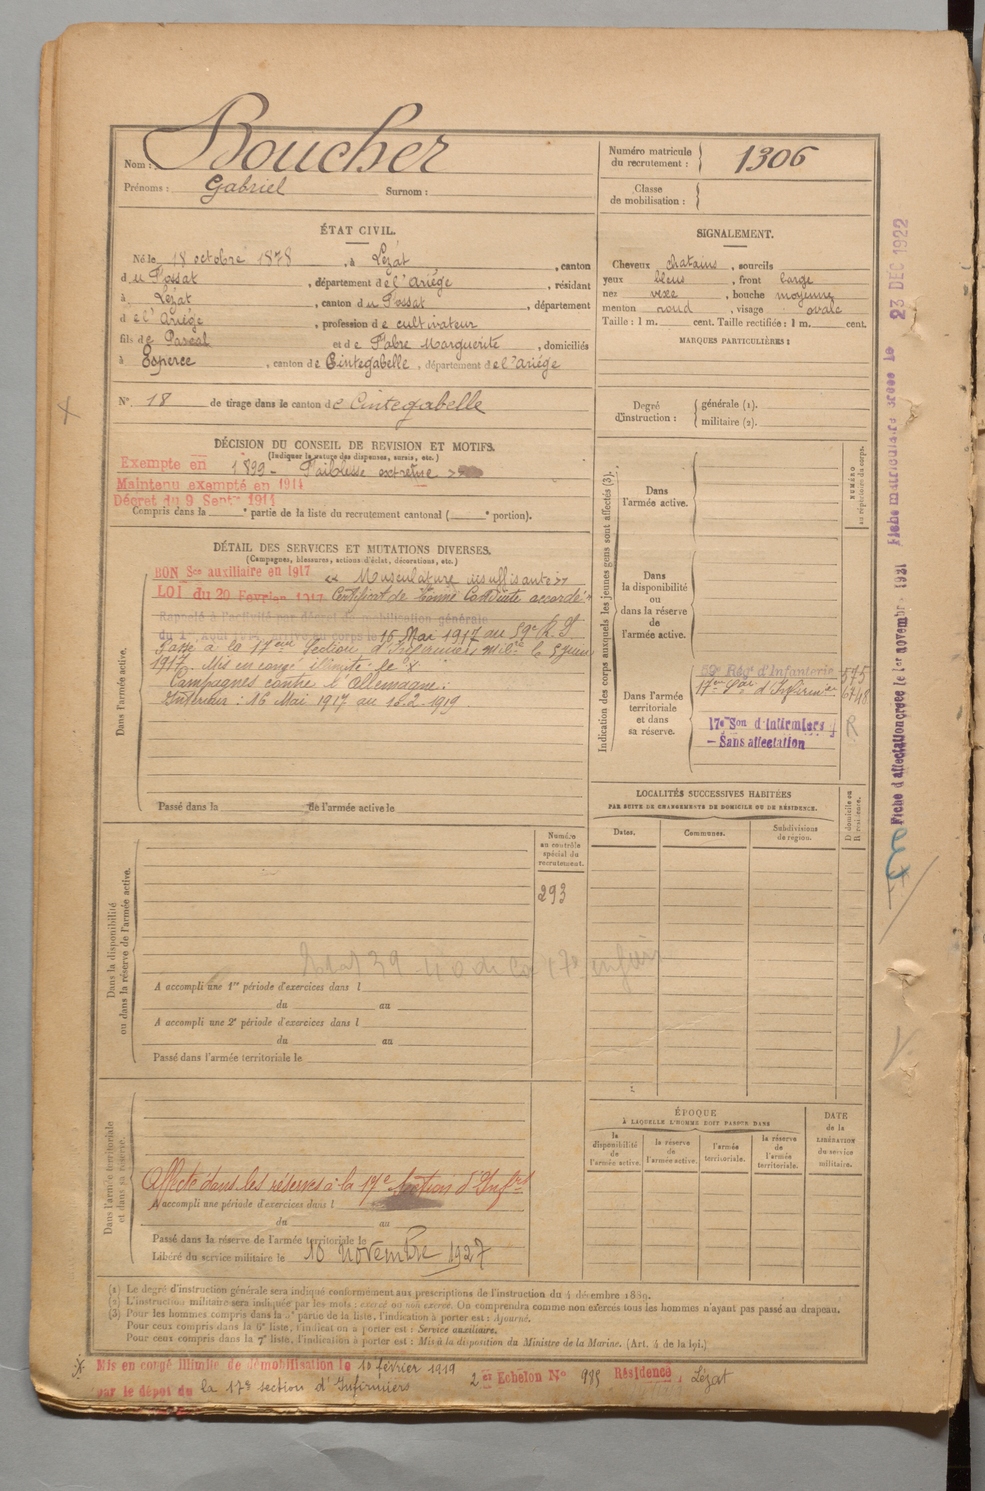 Nom : Boucher
Prénoms : Gabriel Surnom :
Numéro matricule du recrutement : 1306
Classe de mobilisation :
ÉTAT CIVIL.
Né le 18 octobre 1878, à Lézat, canton
du Fossat, département de l'Ariége, résidant
à Lézat, canton du Fossat, département
de l'Ariége, profession de cultivateur
fils de Pascal et de Fabre Marguerite, domiciliés
à Esperce, canton de Cintegabelle, département de l'Ariége
N° 18 de tirage dans le canton de Cintegabelle
SIGNALEMENT.
Cheveux chatains, sourcils
yeux bleus, front large
nez, bouche moyenne
menton rond, visage ovale
Taille : 1 m. cent. Taille rectifiée : 1 m. cent.
MARQUES PARTICULIÈRES :
Degré d'instruction : générale (1).
militaire (2).
DÉCISION DU CONSEIL DE REVISION ET MOTIFS.
(Indiquer la nature des dispenses, sursis, etc.)
Exempté en 1899 - Faiblesse extrême
Maintenu exempté en 1914
Décret du 9 Septre 1914
Compris dans la e partie de la liste du recrutement cantonal ( e portion).
DÉTAIL DES SERVICES ET MUTATIONS DIVERSES.
(Campagnes, blessures, actions d'éclat, décorations, etc.)
Dans l'armée active.
BON Sce auxiliaire en 1917 « Musculature insuffisante »
LOI du 20 Février 1917. Certificat de bonne Conduite accordé
Rappelé à l'activité par décret de mobilisation générale
du 1er Août 1914. Arrivé au corps le 16 Mai 1917 au 59e R. I
Passé à la 17ème Section d'Infirmiers milre le 5 Juin
1917. Mis en congé illimité le X
Campagnes contre l'Allemagne :
Intérieur : 16 Mai 1917 au 10.2.1919
Passé dans la de l'armée active le
Indication des corps auxquels les jeunes gens sont affectés (3).
NUMÉRO au répertoire du corps.
Dans l'armée active.
Dans la disponibilité ou dans la réserve de l'armée active.
Dans l'armée territoriale et dans sa réserve.
59e Régt d'Infanterie 575
17e Son d'Infirmiers 6748
17e Son d'Infirmiers R
- Sans affectation
LOCALITÉS SUCCESSIVES HABITÉES
PAR SUITE DE CHANGEMENTS DE DOMICILE OU DE RÉSIDENCE.
Dates. Communes. Subdivisions de région. D domicile ou R résidence.
Numéro au contrôle spécial du recrutement.
293
Dans la disponibilité ou dans la réserve de l'armée active.
A accompli une 1re période d'exercices dans l
du au
A accompli une 2e période d'exercices dans l
du au
Passé dans l'armée territoriale le
Dans l'armée territoriale et dans sa réserve.
Affecté dans les réserves à la 17e Section d'Infres
A accompli une période d'exercices dans l
du au
Passé dans la réserve de l'armée territoriale le
Libéré du service militaire le 10 novembre 1927
ÉPOQUE
À LAQUELLE L'HOMME DOIT PASSER DANS
la disponibilité de l'armée active. la réserve de l'armée active. l'armée territoriale. la réserve de l'armée territoriale.
DATE de la LIBÉRATION du service militaire.
(1) Le degré d'instruction générale sera indiqué conformément aux prescriptions de l'instruction du 4 décembre 1889.
(2) L'instruction militaire sera indiquée par les mots : exercé ou non exercé. On comprendra comme non exercés tous les hommes n'ayant pas passé au drapeau.
(3) Pour les hommes compris dans la 2e partie de la liste, l'indication à porter est : Ajourné.
Pour ceux compris dans la 6e liste, l'indication à porter est : Service auxiliaire.
Pour ceux compris dans la 7e liste, l'indication à porter est : Mis à la disposition du Ministre de la Marine. (Art. 4 de la loi.)
X Mis en congé illimité de démobilisation le 10 février 1919
par le dépôt du la 17e section d'Infirmiers
2e Echelon N° 985 Résidence, Lézat
Fiche matriculaire créée le 23 DEC 1922
Fiche d'affectation créée le 1er novembre 1921